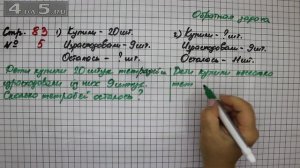 4 да 5.ru
Обратная задача
Стр. 83
№ 5
1) Купили - 20 шт.
Израсходовали - 9 шт.
Осталось - ? шт.
2) Купили - ? шт.
Израсходовали - 9 шт.
Осталось - 11 шт.
Дети купили 20 штук тетрадей и
израсходовали из них 9 штук.
Сколько тетрадей осталось?
Дети купили несколько
тет